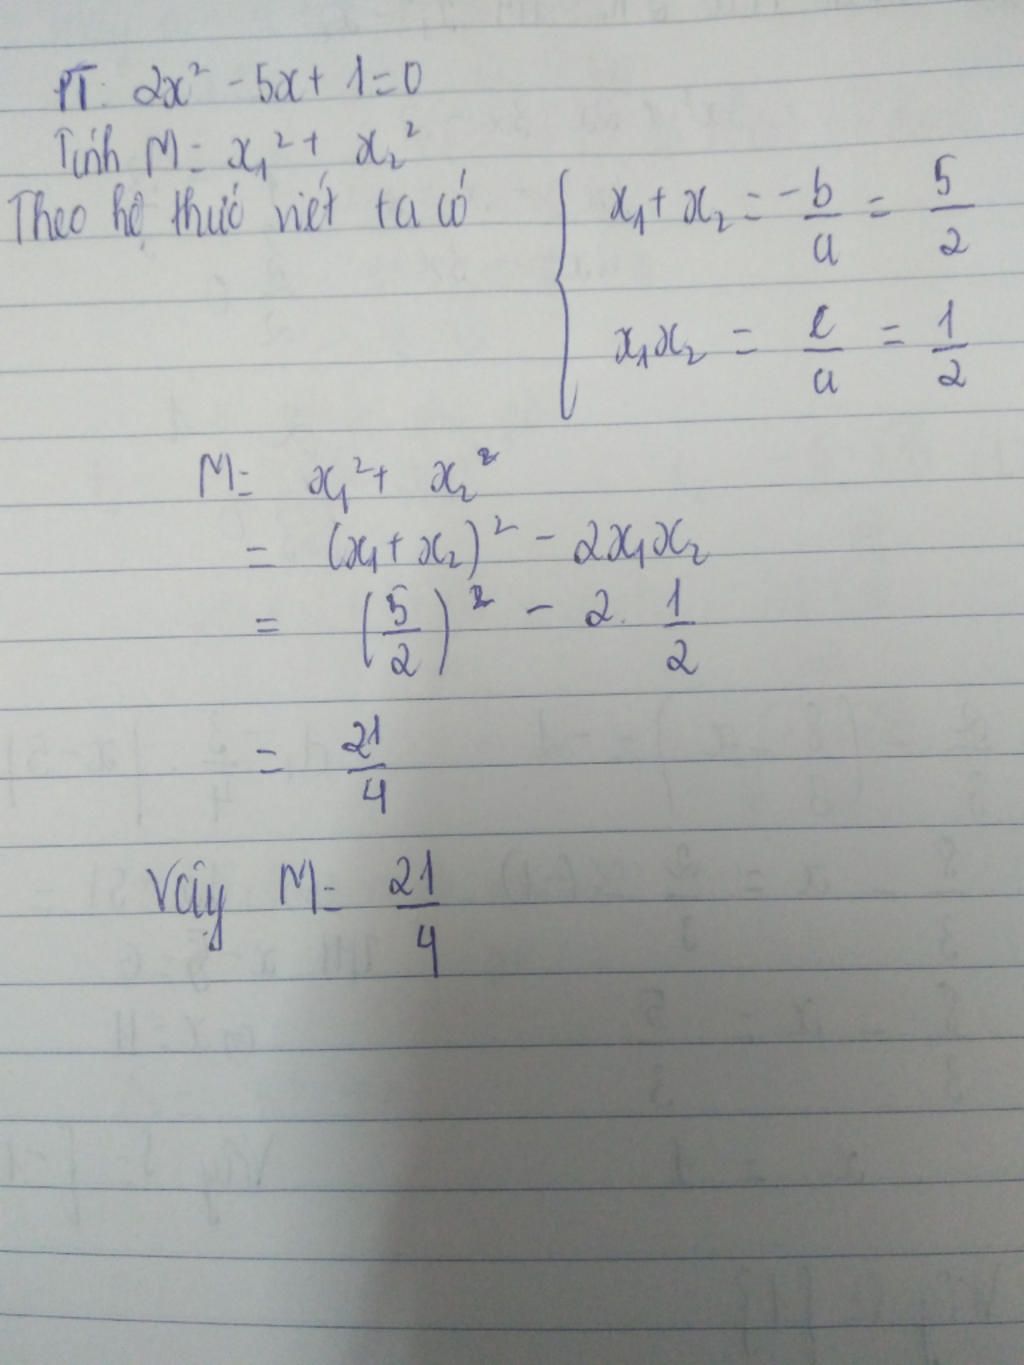 PT: 2x² - 5x + 1 = 0
Tính M = x₁² + x₂²
Theo hệ thức viét ta có { x₁ + x₂ = -b/a = 5/2
x₁x₂ = c/a = 1/2
M = x₁² + x₂²
= (x₁ + x₂)² - 2x₁x₂
= (5/2)² - 2. 1/2
= 21/4
Vậy M = 21/4